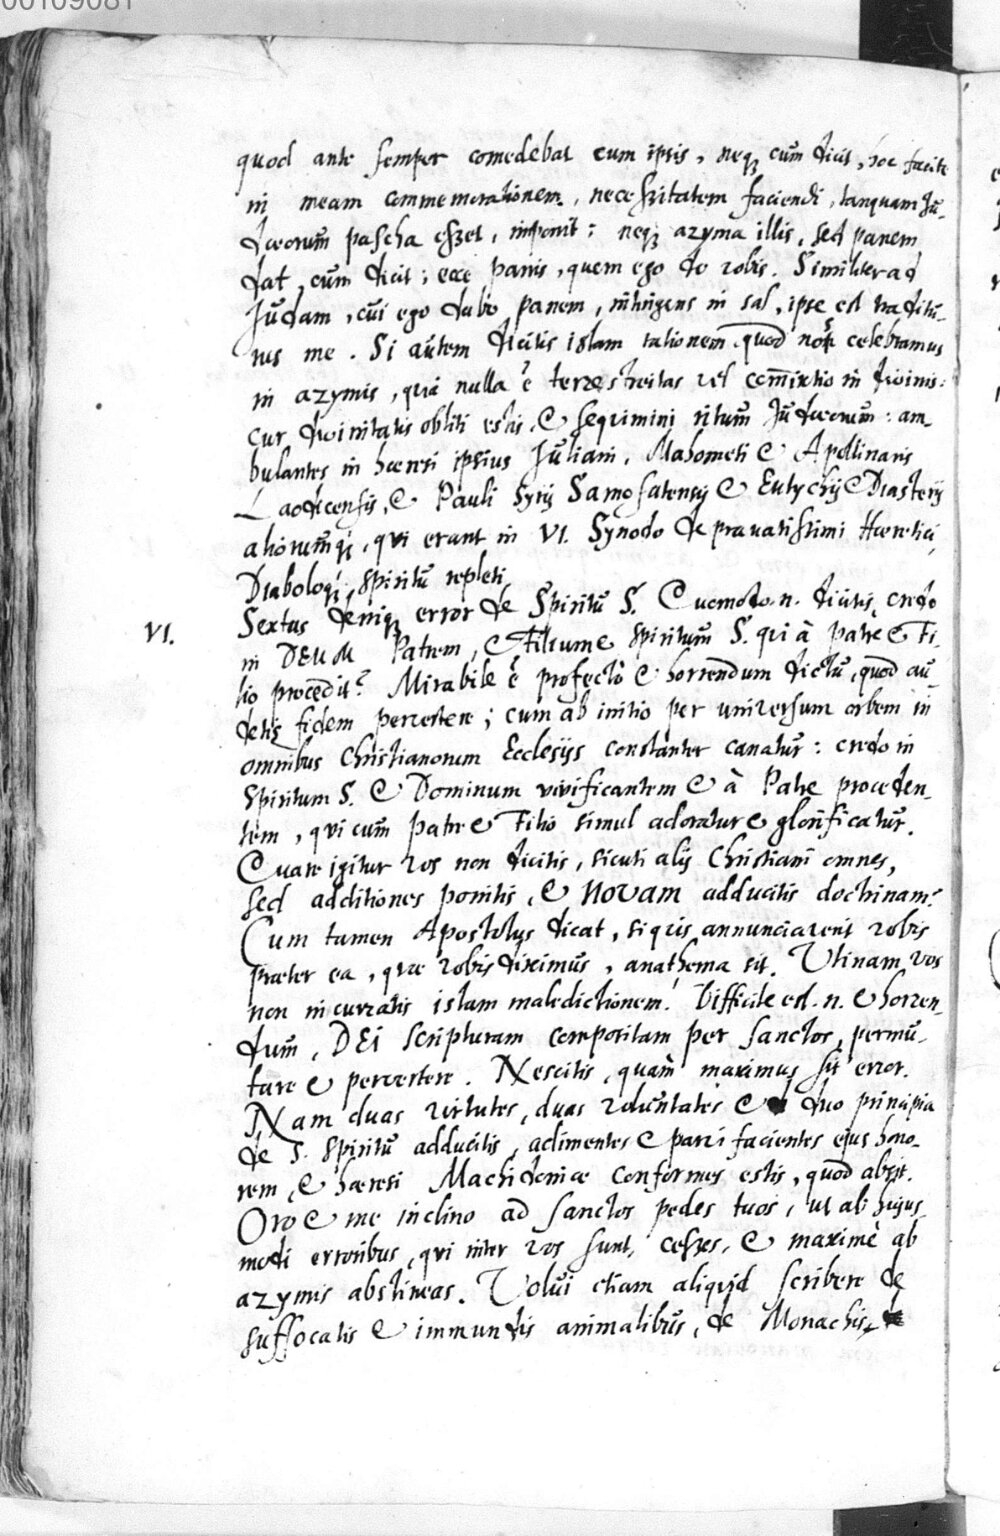 00109081
quod ante semper comedebat cum ipsis, neq₃ cum dicit, hoc facite
in meam commemorationem, necessitatem faciendi, tanquam Ju-
dæorum pascha esset, imponit: neq₃ azyma illis, sed panem
dat, cum dicit; ecce panis, quem ego do vobis. Similiter ad
Judam, cui ego dabo panem, intingens in sal, ipse est traditu-
rus me. Si autem dicitis istam rationem quod nos celebramus
in azymis, quia nulla ē terrestreitas vel com̄ixtio in divinis:
cur divinitatis obliti estis, & sequimini ritum Judæorum: am-
bulantes in hæresi ipsius Juliani, Mahometi & Apollinaris
Laodicensis, & Pauli Syrij Samosatensij & Eutychij & Diasterij
aliorumq₃, qui erant in VI. Synodo depravatissimi Hæretici,
Diaboloq₃, spiritu repleti.
VI. Sextus deniq₃ error de Spiritu S. Quomodo .n. dicitis, credo
in DEUM Patrem, & Filium & Spiritum S. qui à patre & Fi-
lio procedit? Mirabile ē profectò & horrendum dictu, quod au-
detis fidem pervertere; cum ab initio per universum orbem in
omnibus Christianorum Ecclesijs constanter canatur: credo in
Spiritum S. & Dominum vivificantem & à Patre proceden-
tem, qui cum patre & Filio simul adoratur & glorificatur.
Quare igitur vos non dicitis, sicuti alij Christiani omnes,
sed additiones ponitis, & NOVAM adducitis doctrinam?
Cum tamen Apostolus dicat, siquis annunciaverit vobis
præter ea, quæ vobis diximus, anathema sit. Utinam vos
non incurratis istam maledictionem! Difficile est .n. & horren-
dum, DEI scripturam compositam per sanctos, permu-
tare & pervertere. Nescitis, quàm maximus sit error.
Nam duas virtutes, duas voluntates & duo principia
de S. Spiritu adducitis, adimentes & parvi facientes ejus hono-
rem, & hæresi Machidoniæ conformes estis, quod absit.
Oro & me inclino ad sanctos pedes tuos, ut ab hujus-
modi erroribus, qui inter vos sunt, cesses, & maximè ab
azymis abstineas. Volui etiam aliquid scribere de
suffocatis & immundis animalibus, de Monachis,